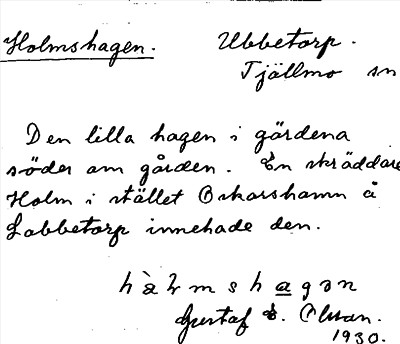 Holmshagen. Ubbetorp.
Tjällmo sn
Den lilla hagen i gärdena
söder om gården. En skräddare
Holm i stället Oskarshamn å
Labbetorp innehade den.
hàl̥mshagən
Gustaf E. Olsson.
1930.